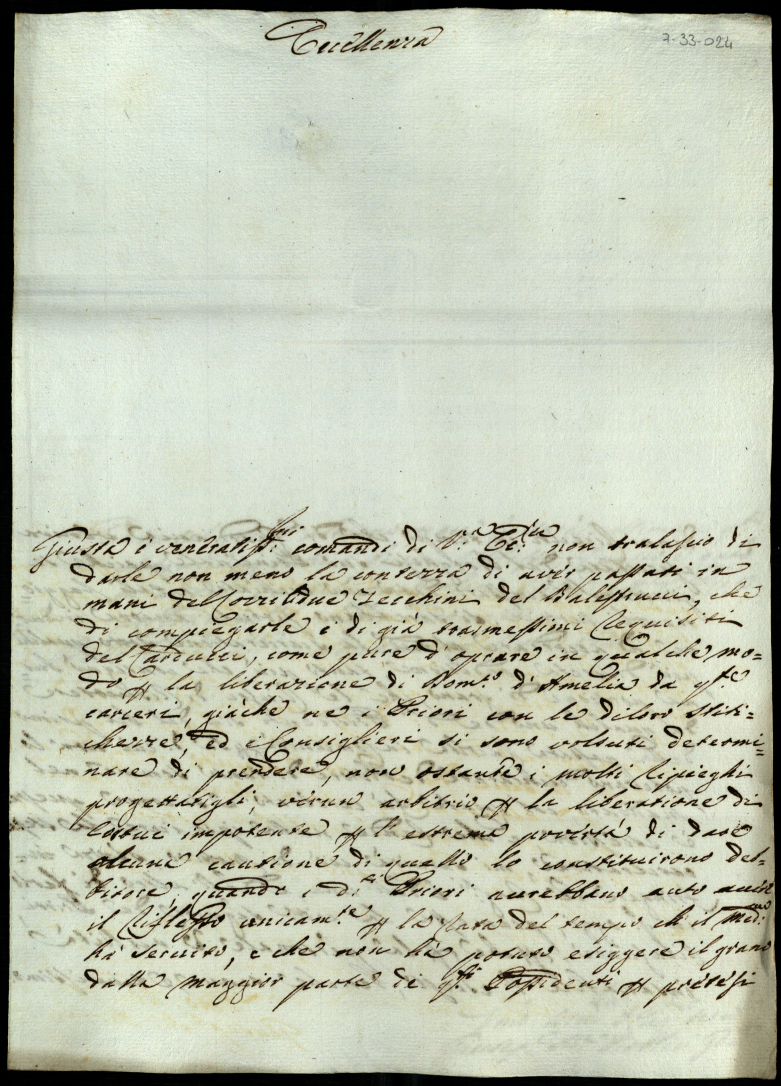 Eccellenza
7-33-024
Giusta i veneratis.mi comandi di V.a Ecc.za non tralascio di
darle non meno la contezza di aver passati in
mani del Corrib due Zecchini del Balestrucci, che
di compiegarle i di già trasmessimi Requisiti
del Carducci, come pure d'oprare in qualche mo-
do p la liberazione di Dom.co d'Amelia da q.te
carceri, giàche ne i Priori con le diloro stiti=
chezze, ed i Consiglieri si sono voluti determi=
nare di prendere, non ostante i molti ripieghi
progettatigli, verun arbitrio p la liberatione di
costui impotente p l'estrema povertà di dare
alcune cautione di quello lo constituirono deb-
bitore, quando i d.i Priori aurebbano auto
il riflesso unicam.te p la rata del tempo ch'il med.mo
hà servito, e che non hà potuto esiggere il grano
dalla maggior parte de q.sti Possidenti p pretesi